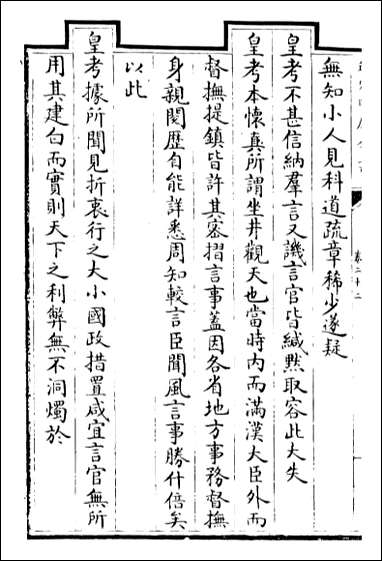 無知小人見科道疏章稀少遂疑
皇考不甚信納羣言又譏言官皆緘黙取容此大失
皇考本懷真所謂坐井觀天也當時内而滿漢大臣外而
督撫提鎮皆許其密摺言事蓋因各省地方事務督撫
身親閱歴自能詳悉周知較言臣聞風言事勝什倍矣
以此
皇考據所聞見折衷行之大小國政措置咸宜言官無所
用其建白而實則天下之利弊無不洞燭於
卷二十二